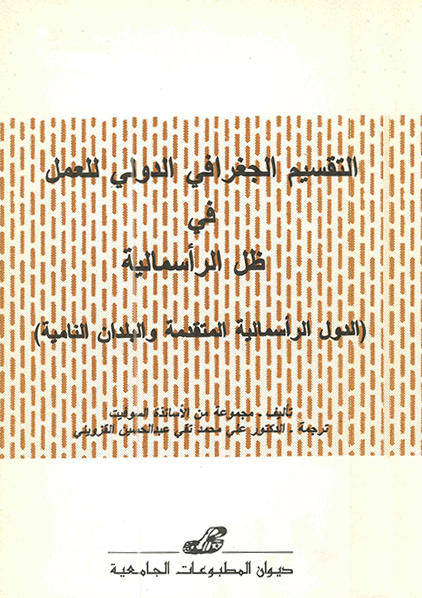 التقسيم الجغرافي الدولي للعمل
في
ظل الرأسمالية
(الدول الرأسمالية المتقدمة والبلدان النامية)
تاليف . مجموعة من الأساتذة السوفيت
ترجمة . الدكتور علي محمد تقي عبدالحسين القزويني
ديوان المطبوعات الجامعية